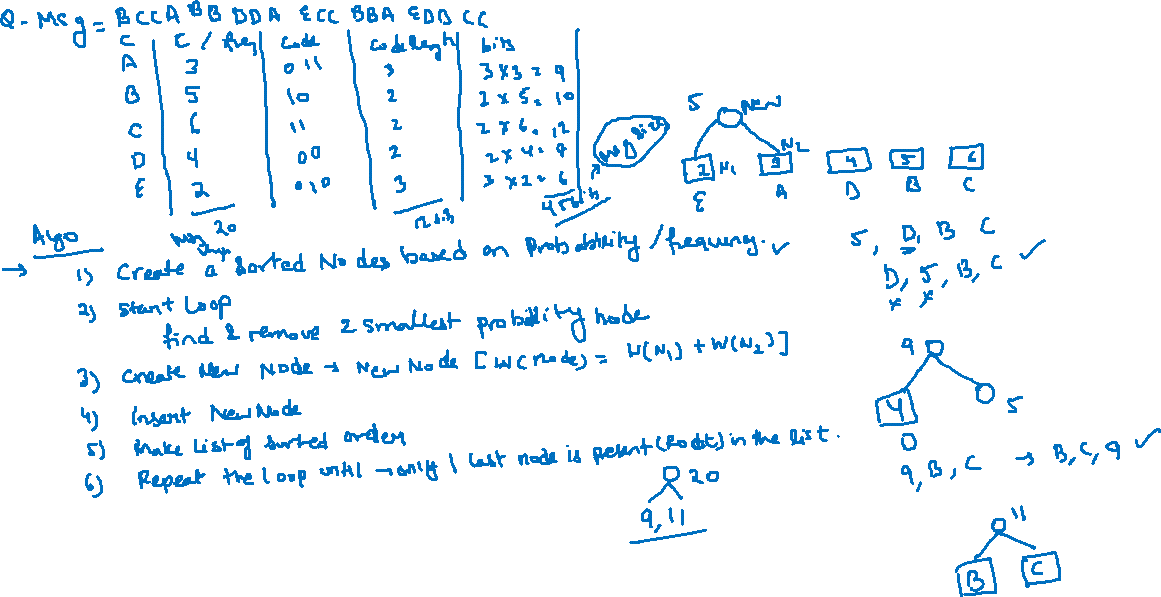 Q - Msg = BCCA BB DDA ECC BBA EDD CC
C | C / freq | Code | Code length | bits
A 3 011 3 3 x 3 = 9
B 5 10 2 2 x 5 = 10
C 6 11 2 2 x 6 = 12
D 4 00 2 2 x 4 = 8
E 2 010 3 3 x 2 = 6
20 12 bits 45 bits
5 New
2 N1 3 N2 4 5 6
E A D B C
Algo
→ 1) Create a Sorted Nodes based on Probability / frequency. ✓
2) Start Loop
find & remove 2 smallest probability node
3) Create New Node → New Node [W(node) = W(N1) + W(N2)]
4) Insert New Node
5) Make List of sorted order
6) Repeat the loop until → only 1 last node is present (Root) in the list.
5, D, B C
D, 5, B, C ✓
x x
9
4 5
D
9, B, C → B, C, 9 ✓
20
9, 11
11
B C